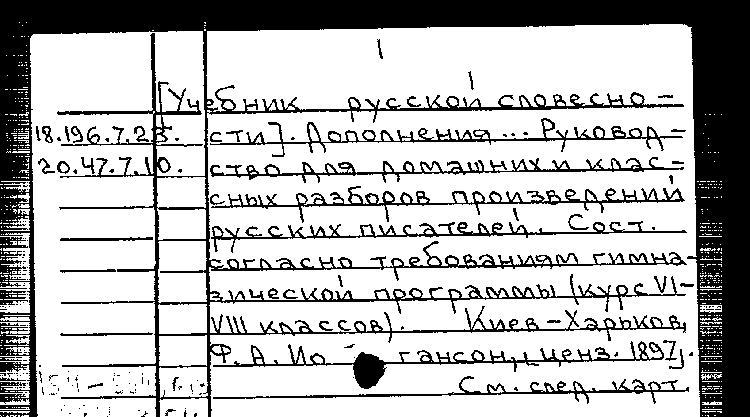 [Учебник русской словесно-
18.196.7.25. сти]. Дополнения ... Руковод-
20.47.7.10. ство для домашних и клас-
сных разборов произведений
русских писателей. Сост.
согласно требованиям гимна-
зической программы (курс VI-
VIII классов). Киев-Харьков,
Ф. А. Ио - гансон, [ценз. 1897].
См. след. карт.